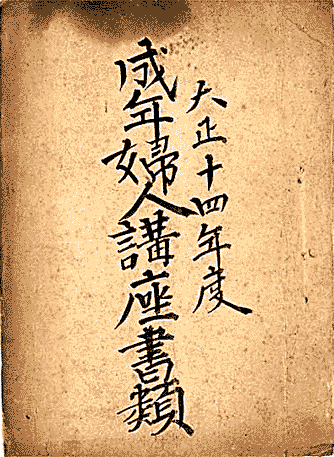 大正十四年度
成年婦人講座書類